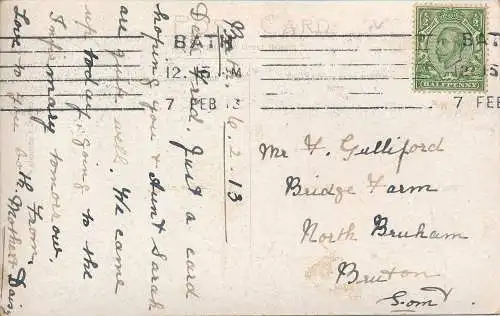 CARD
BATH
12.15 PM
7 FEB 13
HALFPENNY
BAT
12.15
7 FEB
6.2.13
Dear Fred. Just a card
hoping you & Aunt Sarah
are quite well. We came
up today, going to the
Infirmary tomorrow.
Love to you both From
Mother & Dais
Mr F. Gulliford
Bridge Farm
North Bruham
Bruton
Somt